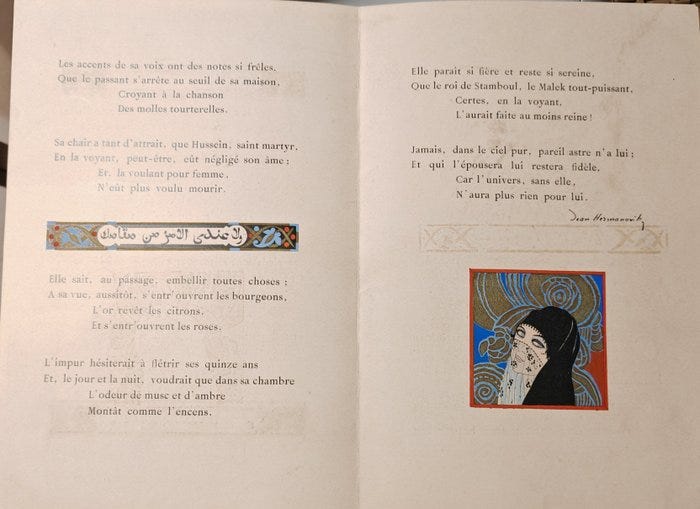 Les accents de sa voix ont des notes si frêles,
Que le passant s'arrête au seuil de sa maison,
Croyant à la chanson
Des molles tourterelles.
Sa chair a tant d'attrait, que Hussein, saint martyr,
En la voyant, peut-être, eût négligé son âme ;
Et, la voulant pour femme,
N'eût plus voulu mourir.
ولا عندي الامز من مقامك
Elle sait, au passage, embellir toutes choses :
A sa vue, aussitôt, s'entr'ouvrent les bourgeons,
L'or revêt les citrons,
Et s'entr'ouvrent les roses.
L'impur hésiterait à flétrir ses quinze ans
Et, le jour et la nuit, voudrait que dans sa chambre
L'odeur de musc et d'ambre
Montât comme l'encens.
Elle paraît si fière et reste si sereine,
Que le roi de Stamboul, le Malek tout-puissant,
Certes, en la voyant,
L'aurait faite au moins reine !
Jamais, dans le ciel pur, pareil astre n'a lui ;
Et qui l'épousera lui restera fidèle,
Car l'univers, sans elle,
N'aura plus rien pour lui.
Jean Hermanovits